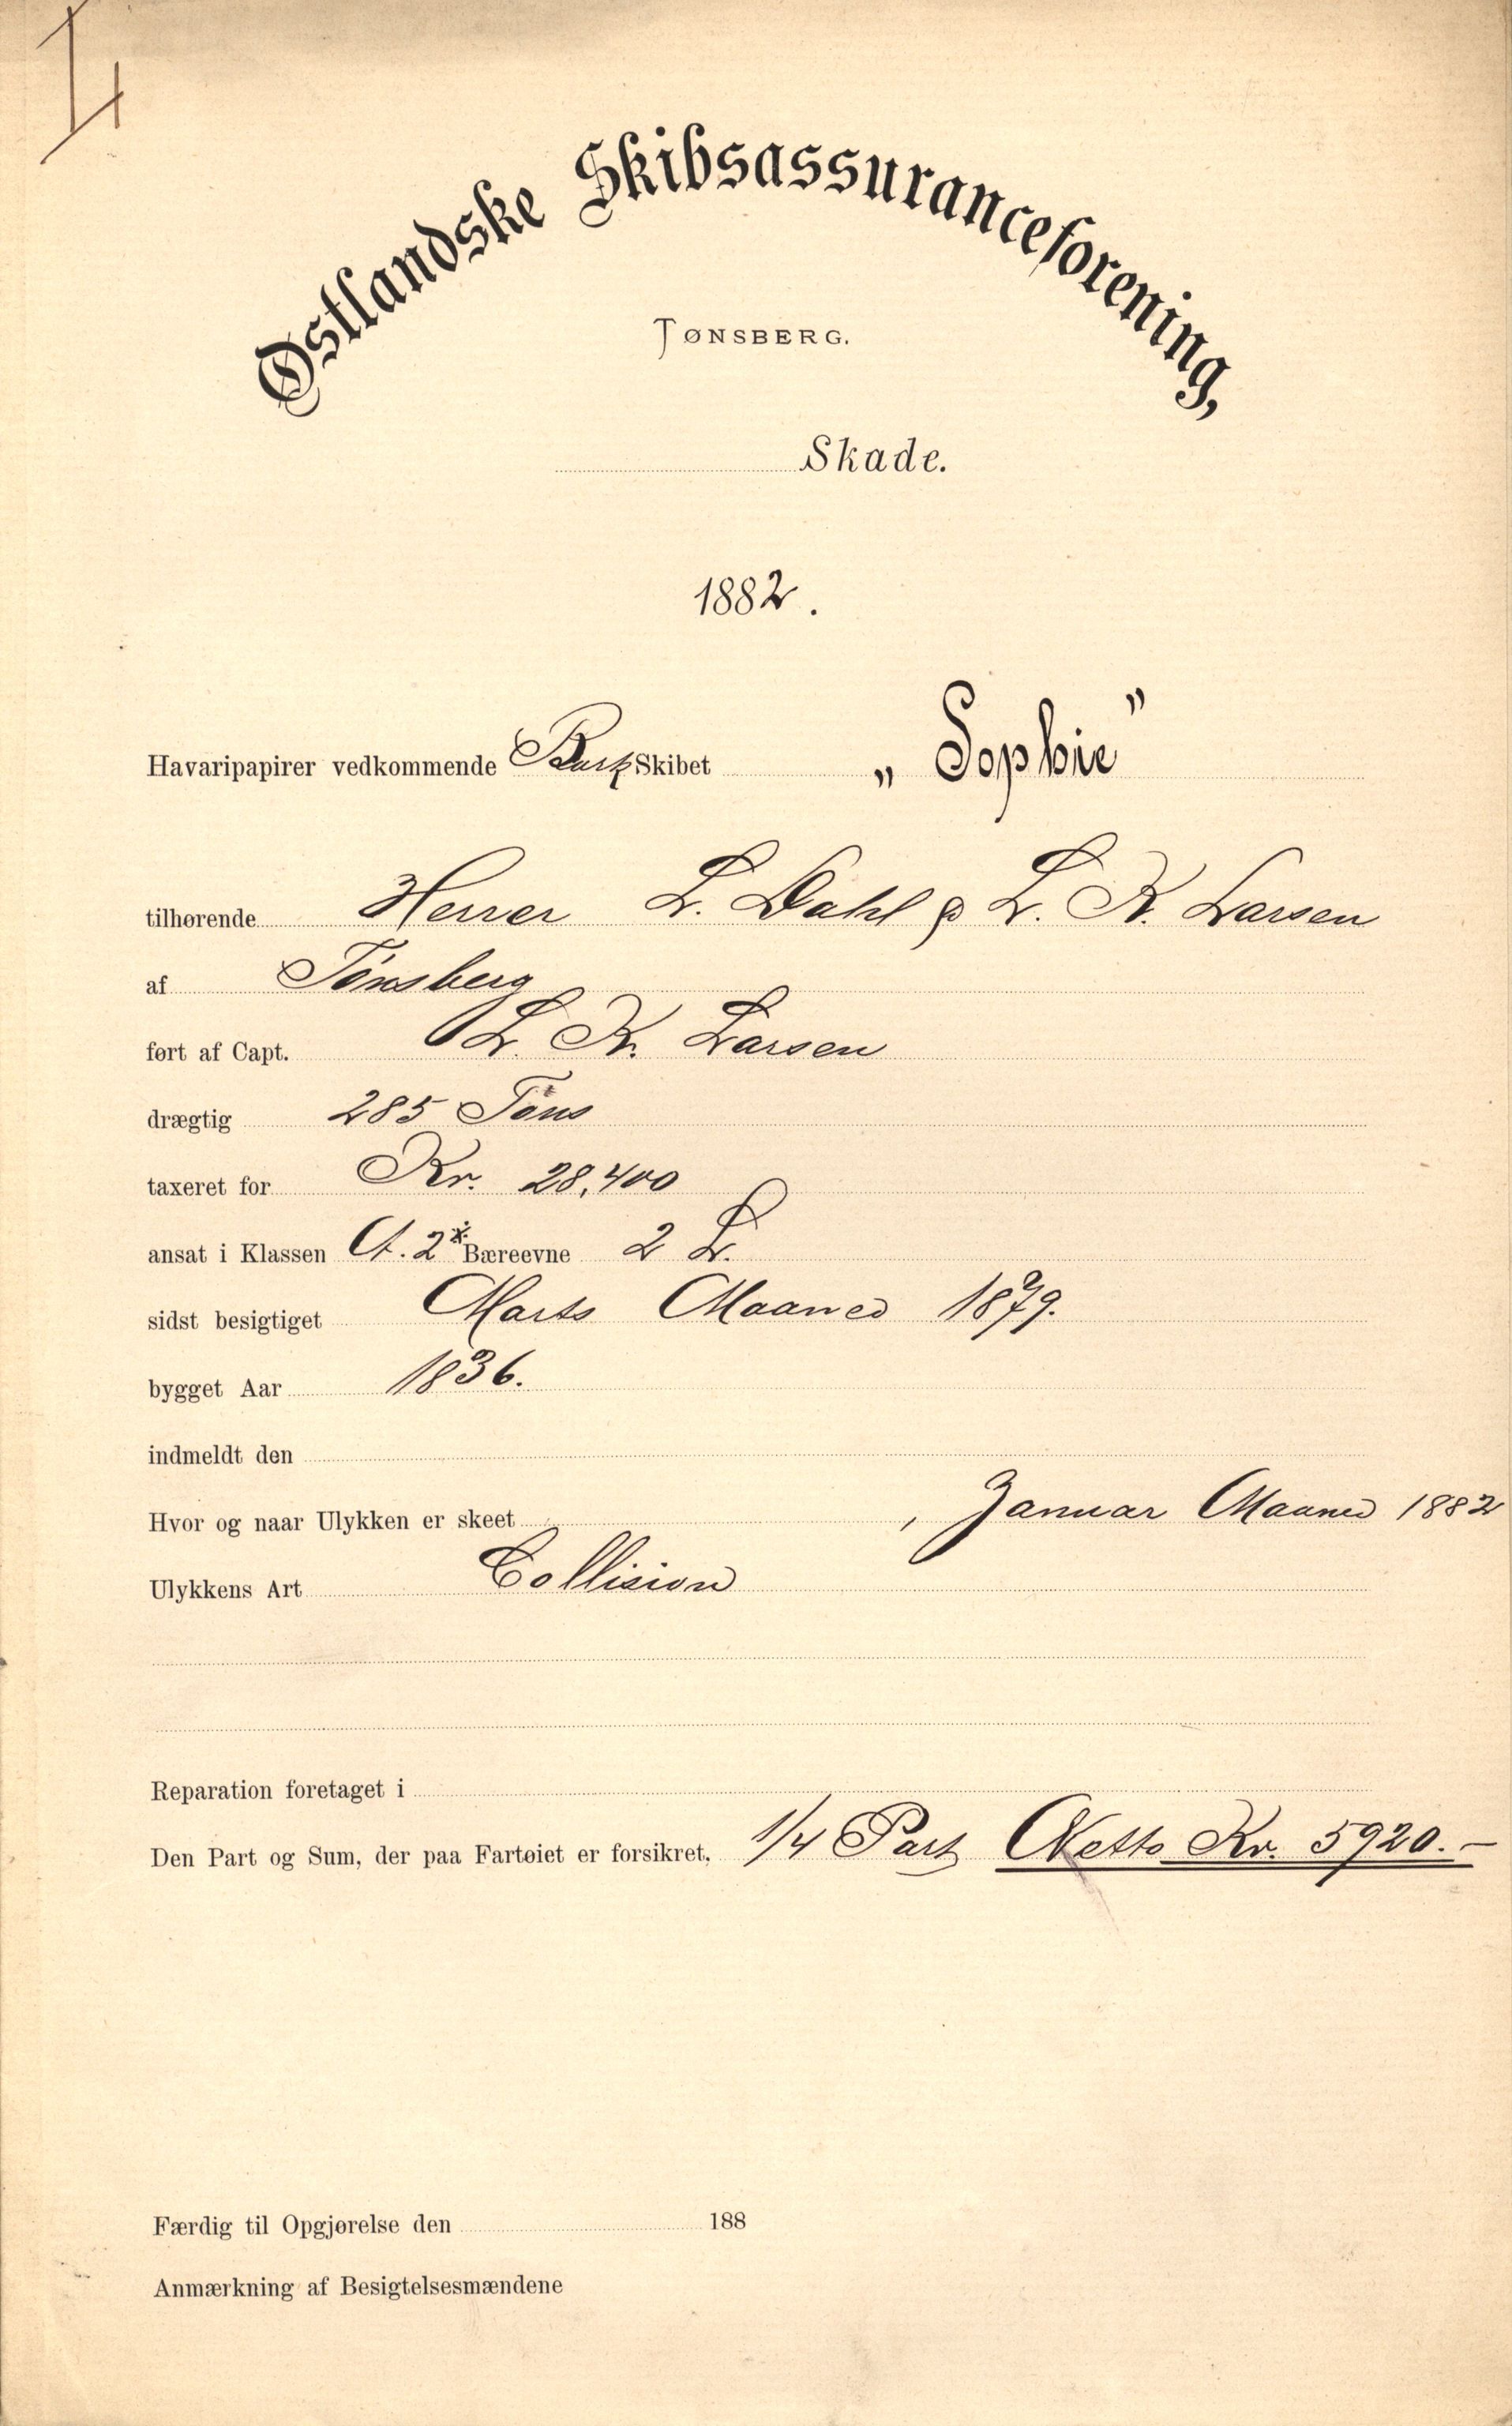 4
Østlandske Skibsassuranceforening,
TØNSBERG.
Skade.
1882.
Havaripapirer vedkommende Bark Skibet „Sophie"
tilhørende Herrer L. Dahl & L. K. Larsen
af Tønsberg
ført af Capt. L. K. Larsen
drægtig 285 Tons
taxeret for Kr. 28,400
ansat i Klassen A. 2 Bæreevne 2 L.
sidst besigtiget Marts Maaned 1879.
bygget Aar 1836.
indmeldt den
Hvor og naar Ulykken er skeet , Januar Maaned 1882
Ulykkens Art Collision
Reparation foretaget i
Den Part og Sum, der paa Fartøiet er forsikret, 1/4 Part Netto Kr. 5920.—
Færdig til Opgjørelse den 188
Anmærkning af Besigtelsesmændene